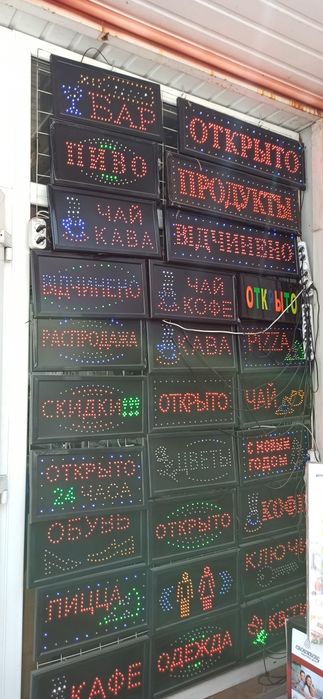 БАР
ОТКРЫТО
ПИВО
ПРОДУКТЫ
ЧАЙ
КАВА
ВІДЧИНЕНО
ВІДЧИНЕНО
ЧАЙ
КОФЕ
ОТКРЫТО
РАСПРОДАЖА
КАВА
PIZZA
СКИДКИ!!!
ОТКРЫТО
ЧАЙ
ОТКРЫТО
24 ЧАСА
ЦВЕТЫ
С НОВЫМ
ГОДОМ
ОБУВЬ
ОТКРЫТО
КОФЕ
ПИЦЦА
КЛЮЧИ
КАФЕ
ОДЕЖДА
КВІТИ